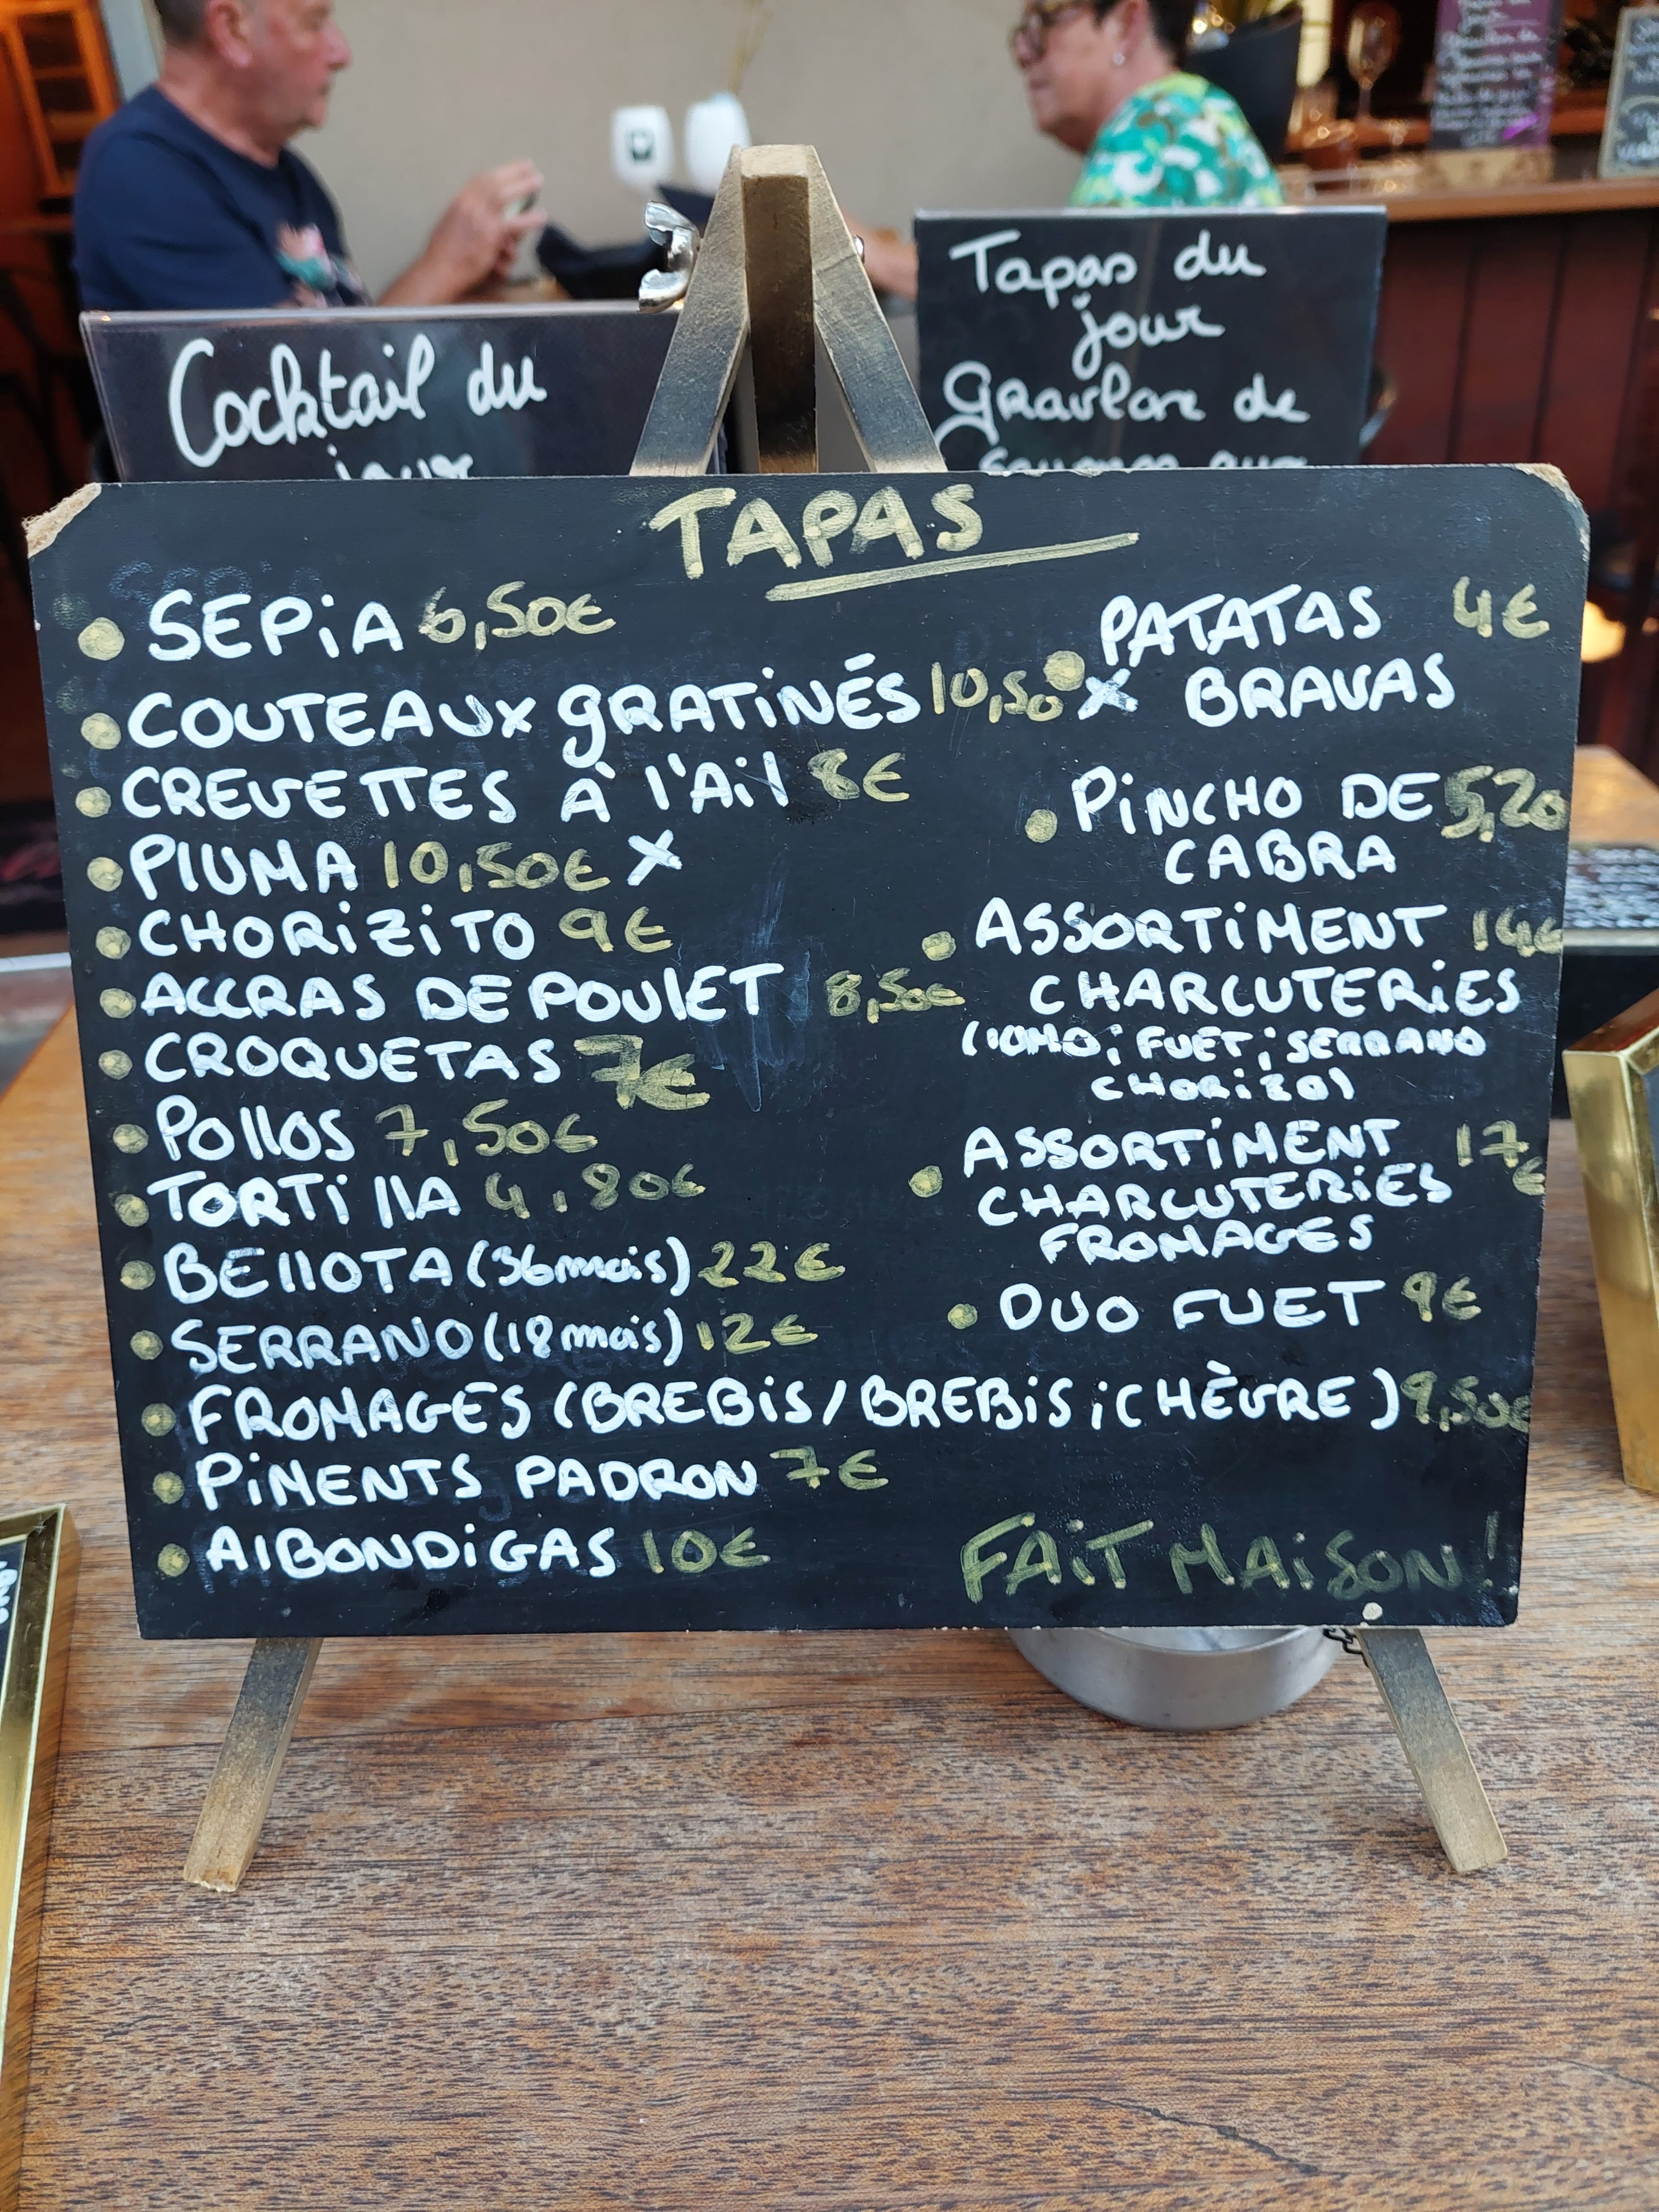 Cocktail du
jour
Tapas du
jour
Gravlax de
TAPAS
SEPiA 6,50€
COUTEAUX gRATiNÉS 10,50 X
CREVETTES À l'Ail 8€
PlUMA 10,50€ X
CHORiZiTO 9€
ACCRAS DE POUlET 8,50€
CROQUETAS 7€
POllOS 7,50€
TORTillA 4,80€
BEllOTA (36 mois) 22€
SERRANO (18 mois) 12€
FROMAGES (BREBiS / BREBiS ; CHÈVRE) 9,50€
PiMENTS PADRON 7€
AlBONDiGAS 10€
PATATAS 4€
BRAVAS
PiNCHO DE 5,20
CABRA
ASSORTiMENT 14€
CHARCUTERiES
(lOMO ; FUET ; SERRANO
CHORiZO)
ASSORTiMENT 17€
CHARCUTERiES
FROMAGES
DUO FUET 9€
FAiT MAiSON !